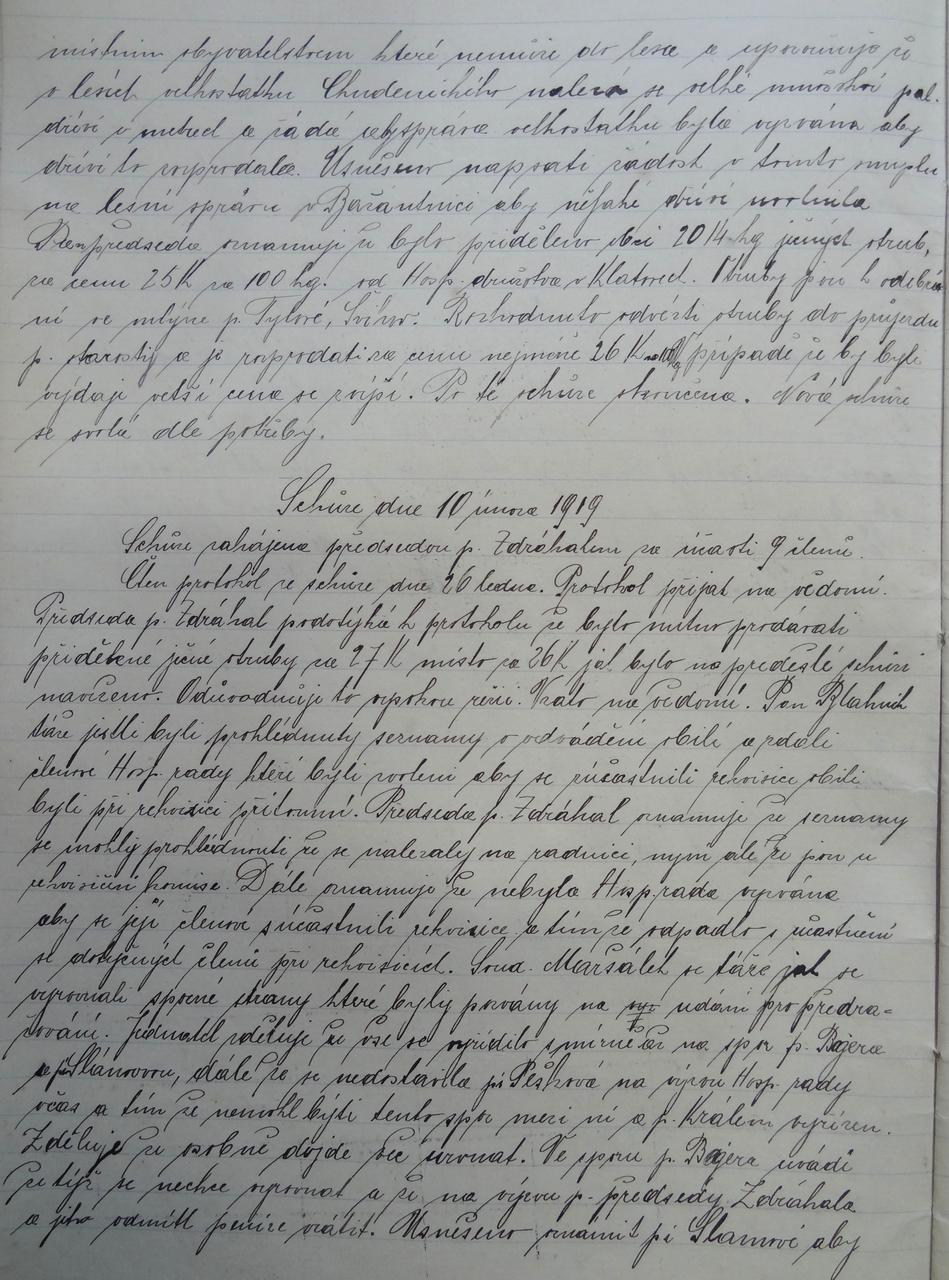 místním obyvatelstvem které nemůže do lesa a upozorňuje že
v lesích velkostatku Chudenického nalezá se velké množství pal.
dříví v metrech a žádá aby správa velkostatku byla vyzvána aby
dříví to rozprodala. Usneseno napsati žádost v tomto smyslu
na lesní správu v Bažantnici aby nějaké dříví uvolnila
Dále předseda oznamuje že bylo přiděleno obci 2014 kg ječných otrub,
za cenu 25 K za 100 kg. od Hosp. družstva v Klatovech. Otruby jsou k odebrá-
ní ve mlýně p. Tylové, Švihov. Rozhodnuto odvézti otruby do průjezdu
p. starosty a je rozprodati za cenu nejméně 26 K případě že by byli
výdaje větší cena se zvýší. Po té schůze skončena. Nová schůze
se svolá dle potřeby.
Schůze dne 10 února 1919
Schůze zahájena předsedou p. Zdráhalem za účasti 9 členů.
Čten protokol ze schůze dne 26 ledna. Protokol přijat na vědomí.
Předseda p. Zdráhal podotýká k protokolu že bylo nutno prodávati
přidělené ječné otruby za 27 K místo za 26 K jak bylo na předešlé schůzi
navrženo. Odůvodňuje to vysokou režií. Vzato na vědomí. Pan Blahník
táže jestli byli prohlédnuty seznamy o odvádění obilí a zdali
členové Hosp. rady kteří byli zvoleni aby se zúčastnili rekvisice obilí
byli při rekvisici přítomni. Předseda p. Zdráhal oznamuje že seznamy
se mohly prohlédnouti že se nalezaly na radnici, nyní ale že jsou u
rekvisiční komise. Dále oznamuje že nebyla Hosp. rada vyzvána
aby se její členové súčastnili rekvisice a tím že odpadlo súčastnění
se dotyčných členů při rekvisicích. Soud. Maršálek se táže jak se
vyrovnali sporné strany které byly pozvány na udání pro předra-
žování. Jednatel sděluje že vše se vyřídilo smírně až na spor p. Bajera
a pí Slámovou, dále že se nedostavila pí Pešková na výzvu Hosp. rady
včas a tím že nemohl býti tento spor mezi ní a p. Králem vyřízen.
Zděluje že osobně dojde věc urovnat. Ve sporu p. Bajera uvádí
že týž se nechce vyrovnat a že na výzvu p. předsedy Zdráhala
a jeho odmítl peníze vrátit. Usneseno oznámit pí Slámové aby